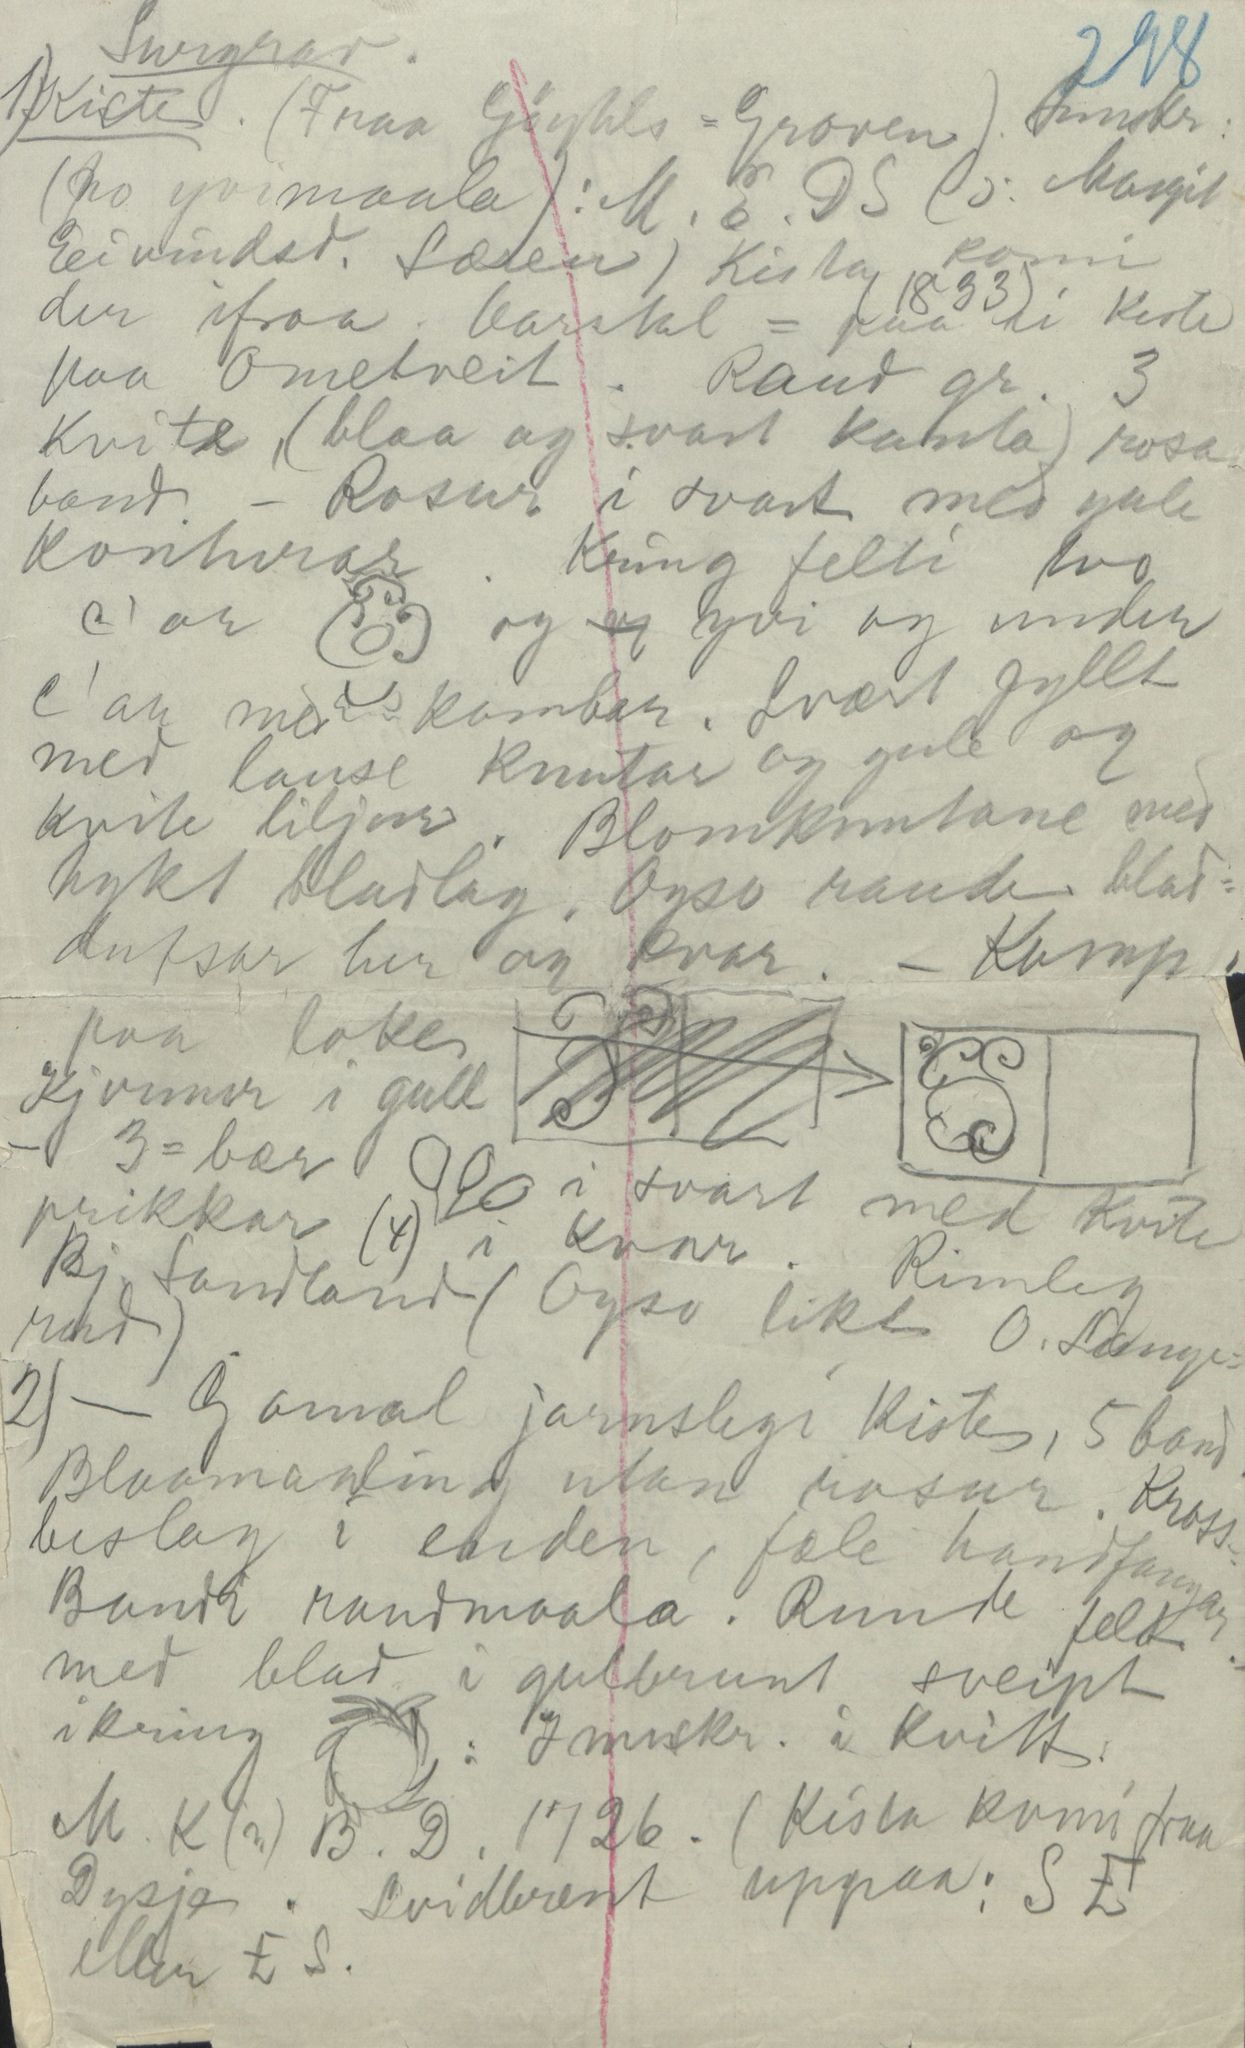 248
Svigrav.
1) Kiste. (Fraa Gøyhls = Graven). Innskr:
(no yvimaala): M. E. DS (ɔ: Margit
Eivindsd. Særen) Kista komi
der ifraa. Aarstal = (1833) paa ei Kiste
paa Ometveit. Raud gr. 3
Kvite, (blaa og svart kanta) rosa-
band. - Rosur i svart med gule
Konturar. Kring felti tvo
C'ar og yvi og under
C'ar med kambar. Svært fyllt
med lause Knutar og gule og
kvite liljur. Blomknutane med
tykt bladlag. Ogso raude blad=
dutsar her og kvar. - Komp.
paa loket
Kjvumur i gull
- 3=bær i svart med kvite
prikkar (4) i kvar. Rimleg
Bj. Sandland (Ogso likt O. Lange=
rud)
2) - Gamal jarnslegi Kiste, 5 band.
Blaamaaling utan rosur. Kross=
beslag i enden, fæle handfangar.
Bandi raudmaala. Runde felt
med blad i gulbrunt sveipt
ikring : Innskr. i kvitt:
M. K (n) B. D. 1726. (Kista komi fraa
Dysje. Svidbrent uppaa: S E
eller E S.